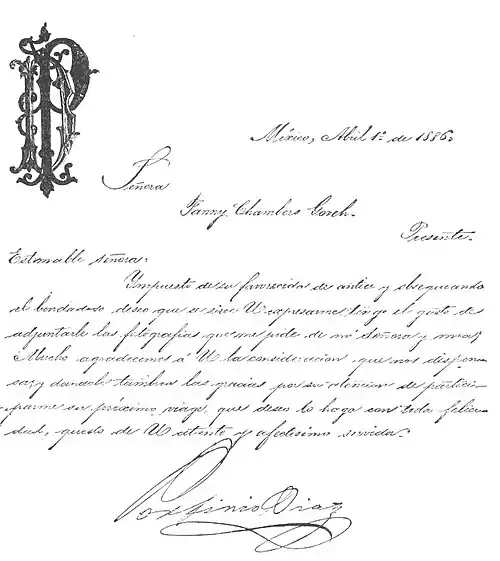 PD
México, Abril 1º de 1886.
Señora
Fanny Chambers Gooch.
Presente.
Estimable Señora:
Impuesto de su favorecida de antier y obsequiando
el bondadoso deseo que se sirve U expresarme, tengo el gusto de
adjuntarle las fotografias que me pide de mi Señora y mias,
Mucho agradecemos á U la consideracion que nos dispen-
sa, y dandole tambien las gracias por su atencion de partici-
parme su próximo viage, que deseo lo haga con toda felici-
dad, quedo de U atento y afectísimo servidor.
Porfirio Diaz